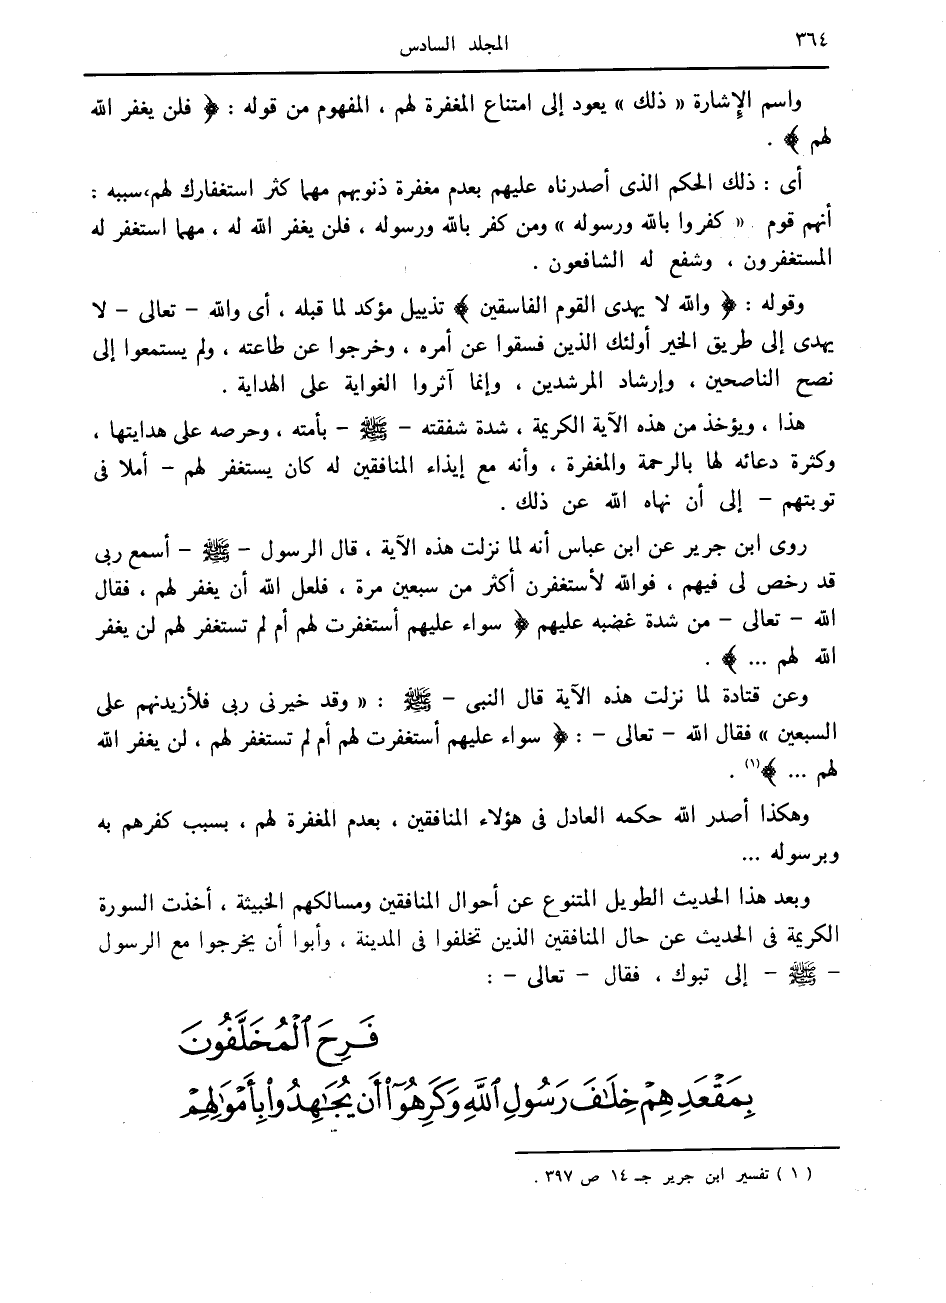 ٣٦٤
المجلد السادس
واسم الإشارة « ذلك » يعود إلى امتناع المغفرة لهم ، المفهوم من قوله : ﴿ فلن يغفر الله
لهم ﴾ .
أى : ذلك الحكم الذى أصدرناه عليهم بعدم مغفرة ذنوبهم مهما كثر استغفارك لهم،سببه :
أنهم قوم « كفروا بالله ورسوله » ومن كفر بالله ورسوله ، فلن يغفر الله له ، مهما استغفر له
المستغفرون ، وشفع له الشافعون .
وقوله : ﴿ والله لا يهدى القوم الفاسقين ﴾ تذييل مؤكد لما قبله ، أى والله – تعالى – لا
يهدى إلى طريق الخير أولئك الذين فسقوا عن أمره ، وخرجوا عن طاعته ، ولم يستمعوا إلى
نصح الناصحين ، وإرشاد المرشدين ، وإنما آثروا الغواية على الهداية .
هذا ، ويؤخذ من هذه الآية الكريمة ، شدة شفقته – ﷺ – بأمته ، وحرصه على هدايتها ،
وكثرة دعائه لها بالرحمة والمغفرة ، وأنه مع إيذاء المنافقين له كان يستغفر لهم – أملا فى
توبتهم – إلى أن نهاه الله عن ذلك .
روى ابن جرير عن ابن عباس أنه لما نزلت هذه الآية ، قال الرسول – ﷺ – أسمع ربى
قد رخص لى فيهم ، فوالله لأستغفرن أكثر من سبعين مرة ، فلعل الله أن يغفر لهم ، فقال
الله – تعالى – من شدة غضبه عليهم ﴿ سواء عليهم أستغفرت لهم أم لم تستغفر لهم لن يغفر
الله لهم ... ﴾ .
وعن قتادة لما نزلت هذه الآية قال النبى – ﷺ : « وقد خيرنى ربى فلأزيدنهم على
السبعين » فقال الله – تعالى – : ﴿ سواء عليهم أستغفرت لهم أم لم تستغفر لهم ، لن يغفر الله
لهم ... ﴾(١) .
وهكذا أصدر الله حكمه العادل فى هؤلاء المنافقين ، بعدم المغفرة لهم ، بسبب كفرهم به
وبرسوله ...
وبعد هذا الحديث الطويل المتنوع عن أحوال المنافقين ومسالكهم الخبيثة ، أخذت السورة
الكريمة فى الحديث عن حال المنافقين الذين تخلفوا فى المدينة ، وأبوا أن يخرجوا مع الرسول
– ﷺ – إلى تبوك ، فقال – تعالى – :
فَرِحَ ٱلْمُخَلَّفُونَ
بِمَقْعَدِهِمْ خِلَٰفَ رَسُولِ ٱللَّهِ وَكَرِهُوٓا۟ أَن يُجَٰهِدُوا۟ بِأَمْوَٰلِهِمْ
( ١ ) تفسير ابن جرير جـ ١٤ ص ٣٩٧ .